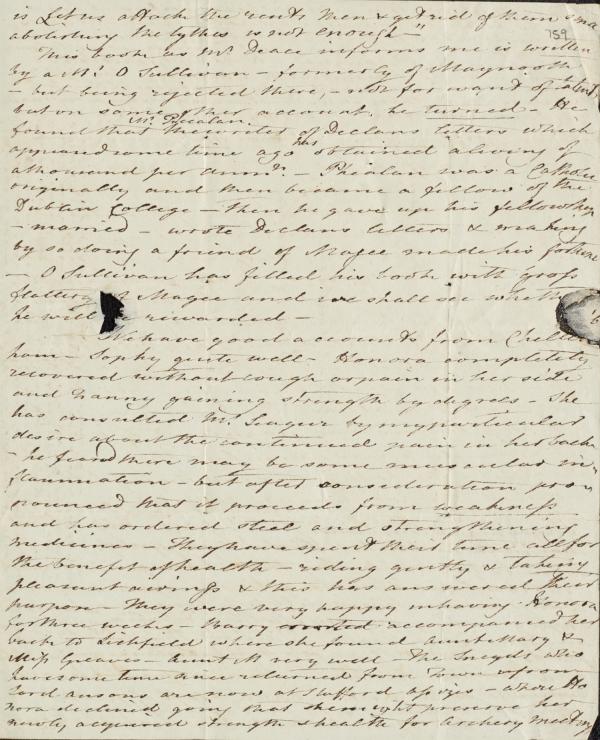 is Let us attack the rents then & get rid of them sma
abolishing the tythes is not enough—"
759
This book as Mr. Peace informs me is written
by a Mr. O Sullivan — formerly of Maynooth
— but being rejected there, — not for want of talent
but on some other account. he turned — He
found that the writer of Declans letters which
Mr. Phealan
appeared some time ago has obtained a living of
a thousand per annm. Phealan was a Catholic
originally and then became a fellow of the
Dublin College — then he gave up his fellowship
— married — wrote Declans letters & making
by so doing a friend of Magee made his fortune
— O Sullivan has filled his book with gross
flattery Magee and we shall see whether
he will rewarded —
We have good accounts from Chelten
ham — Sophy quite well — Honora completely
recovered without cough or pain in her side
and Fanny gaining strength by degrees — She
has consulted Mr. Seager by my particular
desire about the continued pain in her back
— he feared there may be some muscular in-
flammation — but after consideration pro-
nounced that it proceeds from weakness
and has ordered steel and strengthening
medicines — They have spent their time all for
the benefit of health — riding gently & taking
pleasant airings & this has answered their
purpose — They were very happy in having Honora
for three weeks — Barry accompanied her
back to Lichfield where she found Aunt Mary &
Miss Greaves — Aunt M very well — The Sneyds who
have some time since returned from Town
Lord Ansons are now at Stafford — where Ho
nora declined going that she might preserve her
newly acquired strength & health for Archery meeting